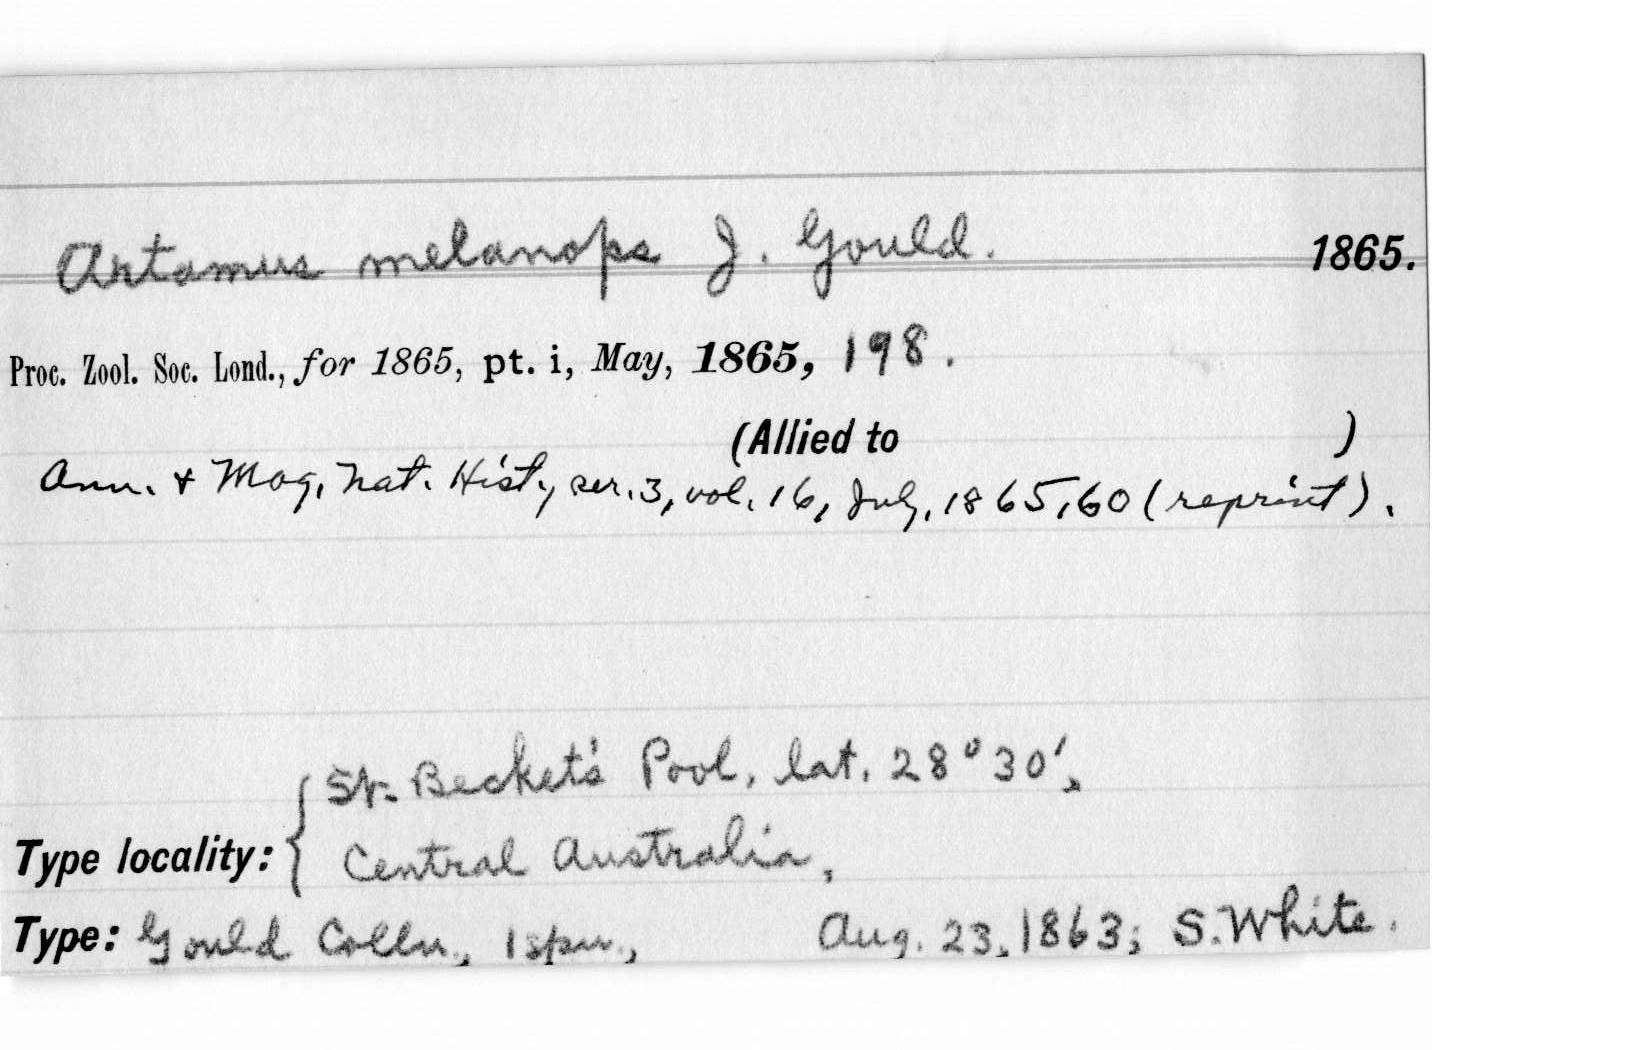 Artamus melanops J. Gould. 1865.
Proc. Zool. Soc. Lond., for 1865, pt. i, May, 1865, 198.
(Allied to )
Ann. & Mag. Nat. Hist., ser. 3, vol. 16, July, 1865, 60 (reprint).
St. Becket's Pool, lat. 28° 30',
Type locality: { Central Australia,
Type: Gould Colln., 1 spm., Aug. 23, 1863; S. White.